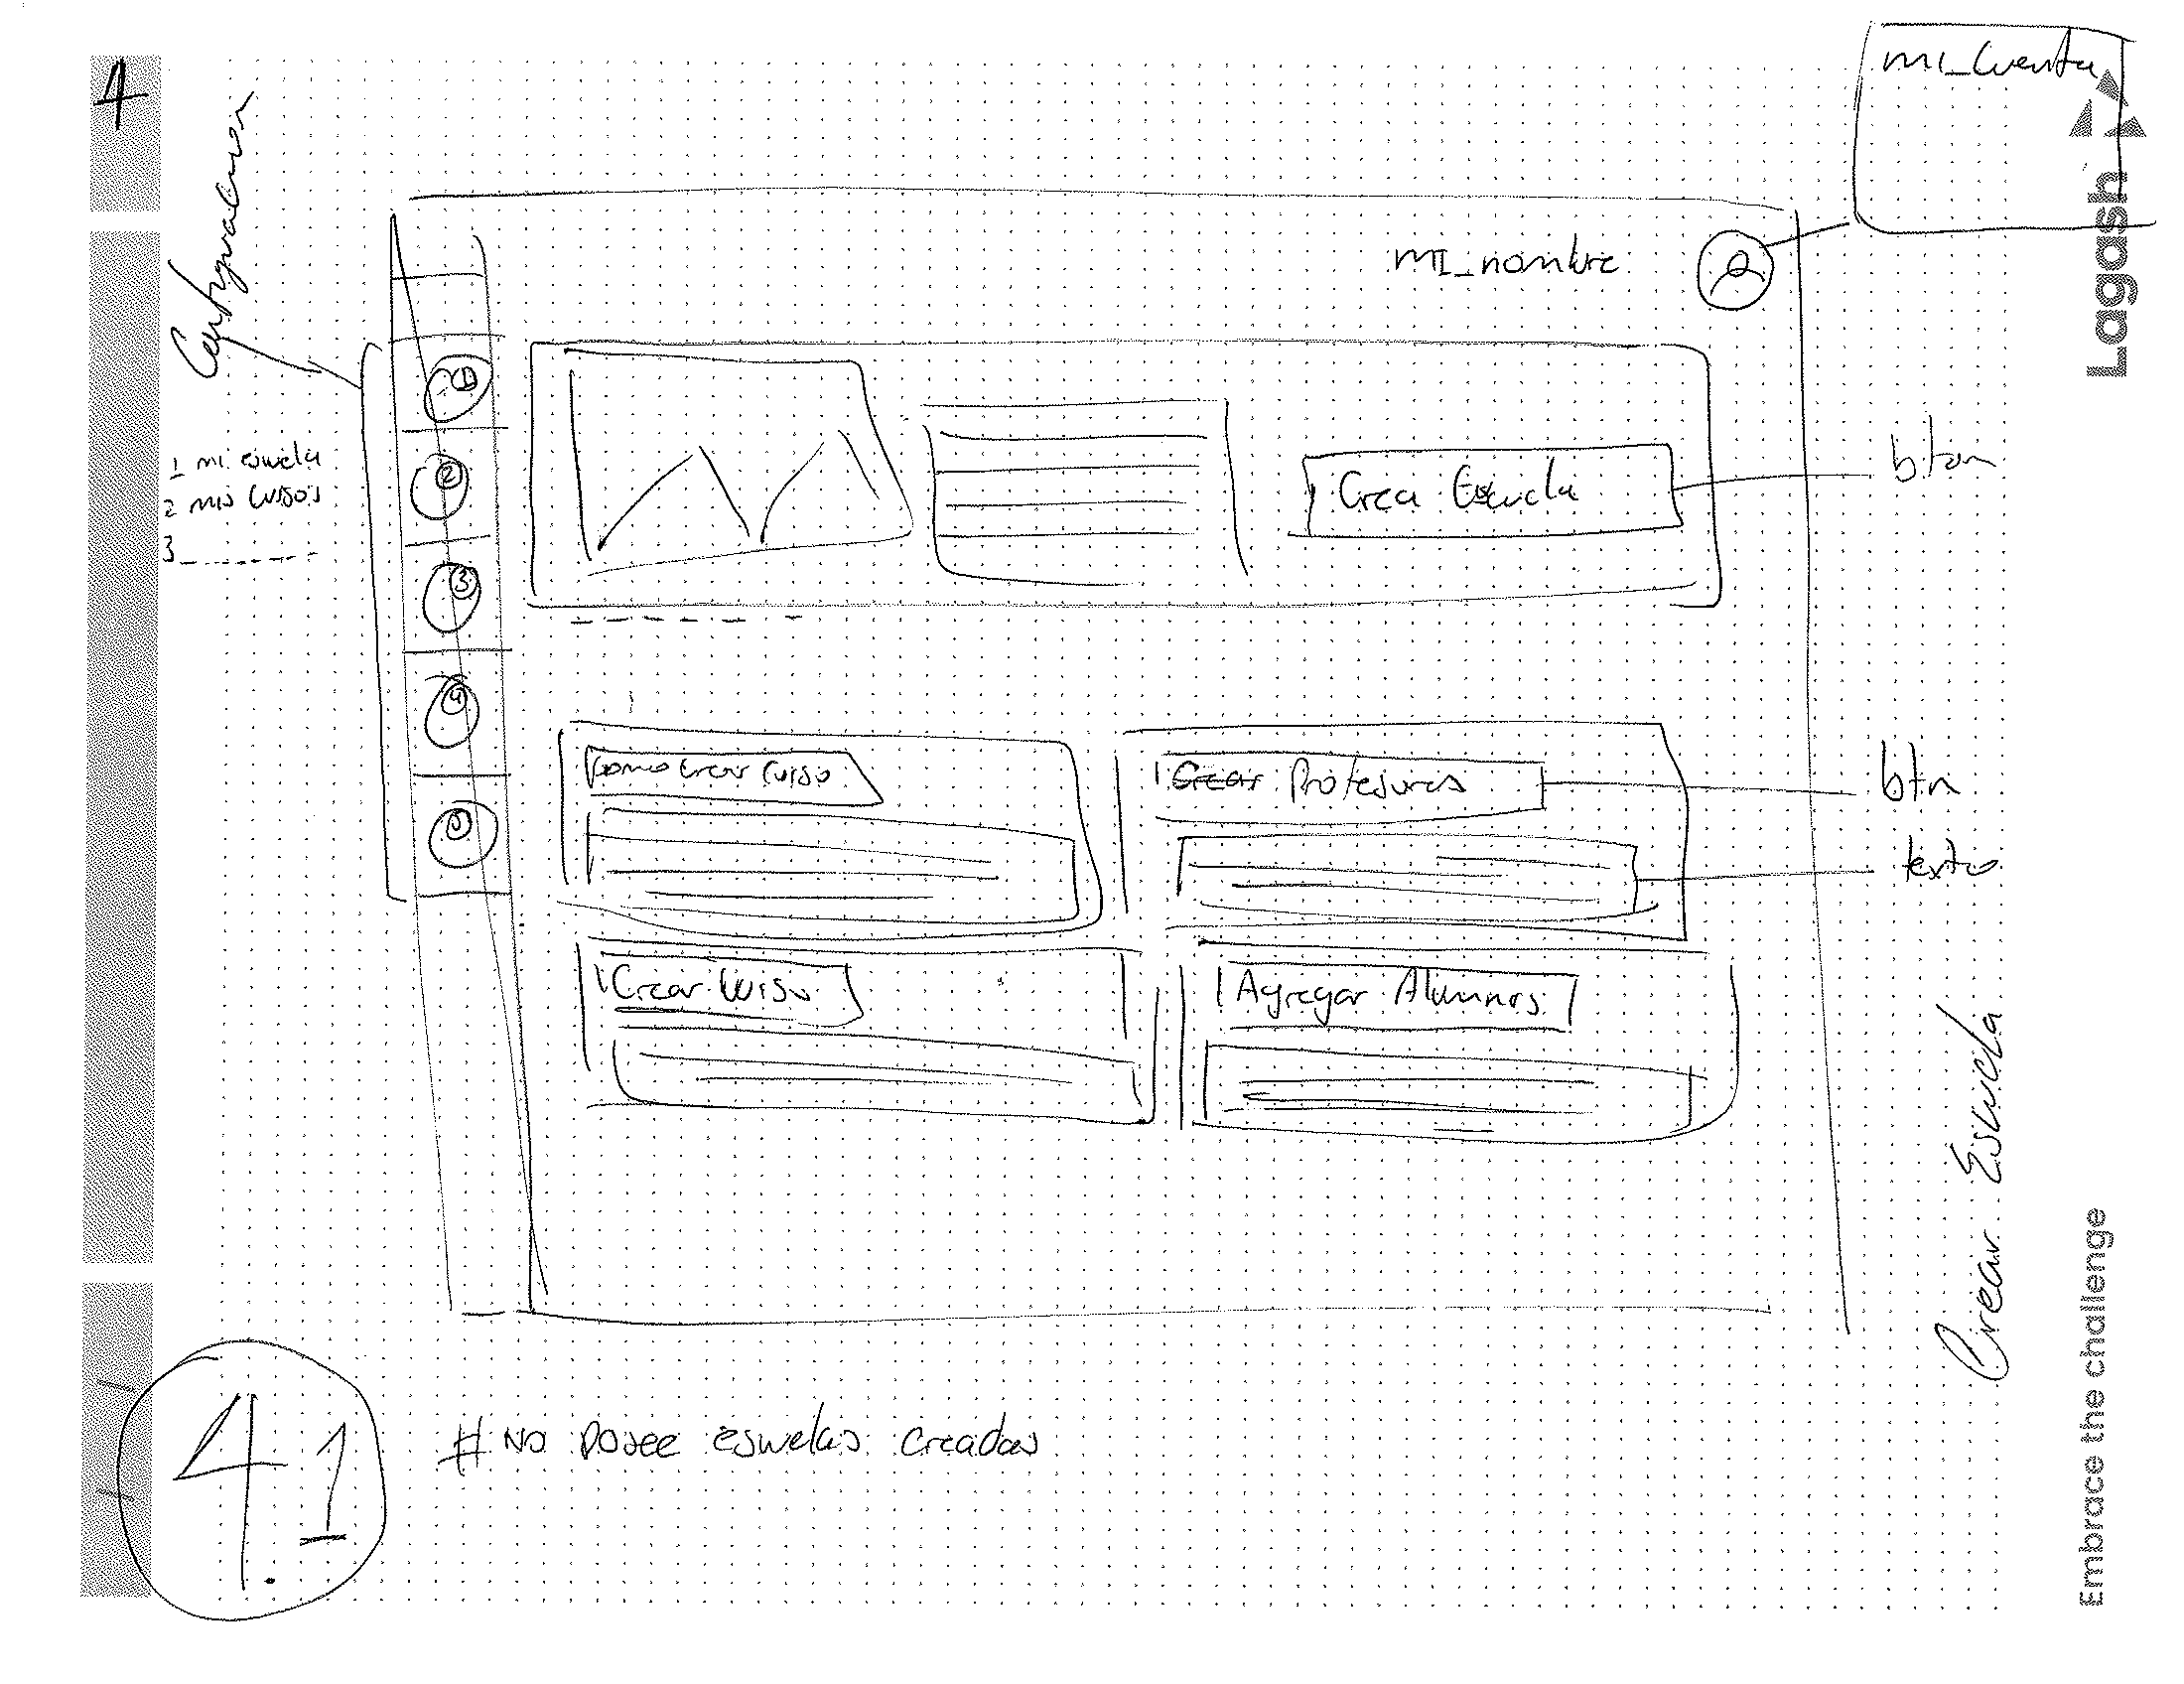 4
mi_Cuenta
Configuracion
mi_nombre
Lagash
1 mi escuela
2 mis cursos
3
1
2
3
4
5
Crea Escuela
boton
Como crear curso
Crear Profesores
btn
texto
Crear curso
Agregar Alumnos
Crear Escuela
Embrace the challenge
4.1
# No posee escuelas creadas